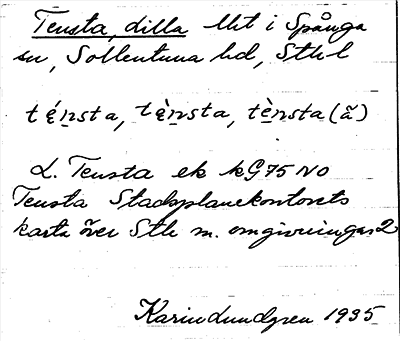 Tensta, dilla Mt i Spånga
sn, Sollentuna hd, Sthl
tę́nsta, tę̀nsta, tènsta (ã)
L. Tensta ek kG75 NO
Tensta Stadsplanekontorets
karta över Sth m. omgivningar 2
Karin Lundgren 1935